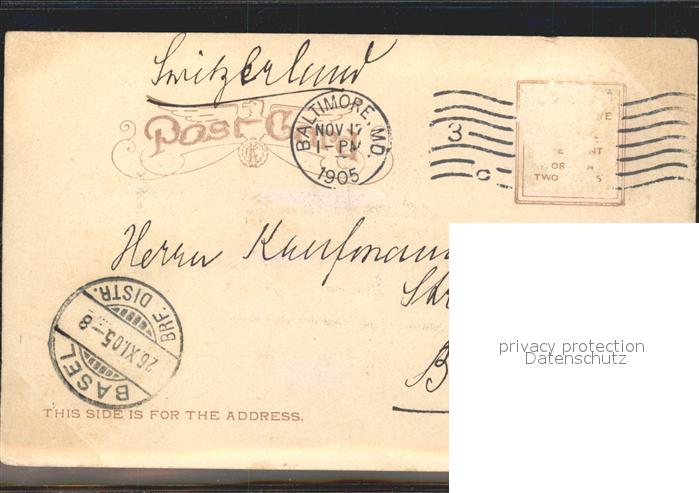 Switzerland
Post Card
BALTIMORE, MD.
NOV 17
1-PM
1905
3
C
OR
TWO
Herrn Kaufmann
Str
B
BASEL
26.XI.05-8
BRF. DISTR.
THIS SIDE IS FOR THE ADDRESS.
privacy protection
Datenschutz